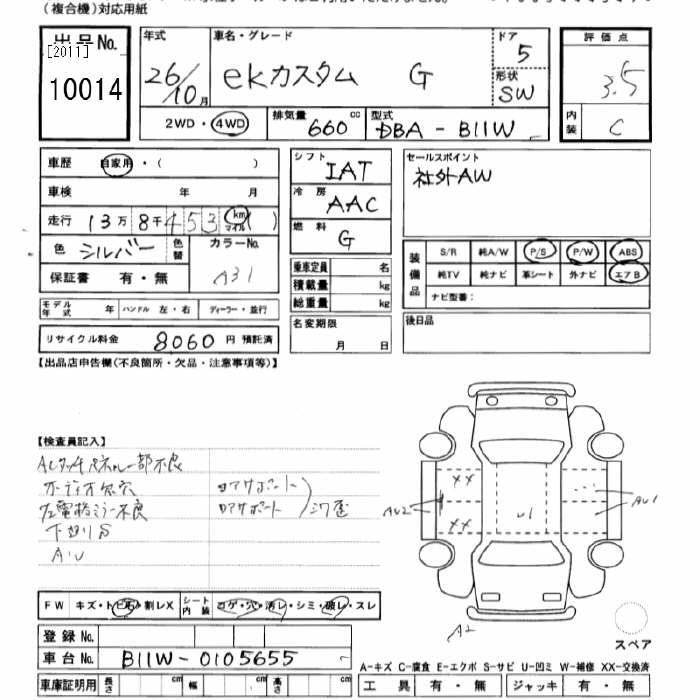 (複合機)対応用紙
出品No. [2011] 10014
年式 26/10月
車名・グレード ekカスタム G
ドア 5
形状 SW
評価点 3.5
内装 C
2WD・4WD
排気量 660 cc
型式 DBA-B11W
車歴 自家用・( )
車検 年 月
走行 13万8千453 km マイル ( )
色 シルバー 色替
カラーNo. A31
保証書 有・無
シフト IAT
冷房 AAC
燃料 G
乗車定員 名
積載量 kg
総重量 kg
セールスポイント
社外AW
装備品 S/R 純A/W P/S P/W ABS
純TV 純ナビ 革シート 外ナビ エアB
ナビ型番:
モデル年式 年 ハンドル 左・右 ディーラー・並行
リサイクル料金 8060 円 預託済
名変期限 月 日
後日品
【出品店申告欄(不良箇所・欠品・注意事項等)】
【検査員記入】
ACタッチパネル一部不良
オーディオ欠穴
左電格ミラー不良
下廻りS
A・U
ロアサポート
ロアサポート
XX
XX
AU2
U1
AU1
A2
FW キズ・トビ石・割レX
シート内装 コゲ・穴・汚レ・シミ・破レ・スレ
登録No.
車台No. B11W-0105655
スペア
A-キズ C-腐食 E-エクボ S-サビ U-凹ミ W-補修 XX-交換済
車庫証明用 長さ cm 幅 cm 高さ cm
工具 有・無 ジャッキ 有・無